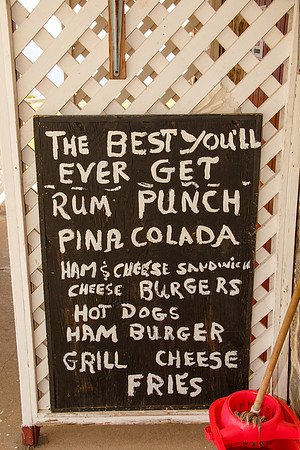 THE BEST YOU'LL
EVER GET
RUM PUNCH
PINA COLADA
HAM & CHEESE SANDWICH
CHEESE BURGERS
HOT DOGS
HAM BURGER
GRILL CHEESE
FRIES